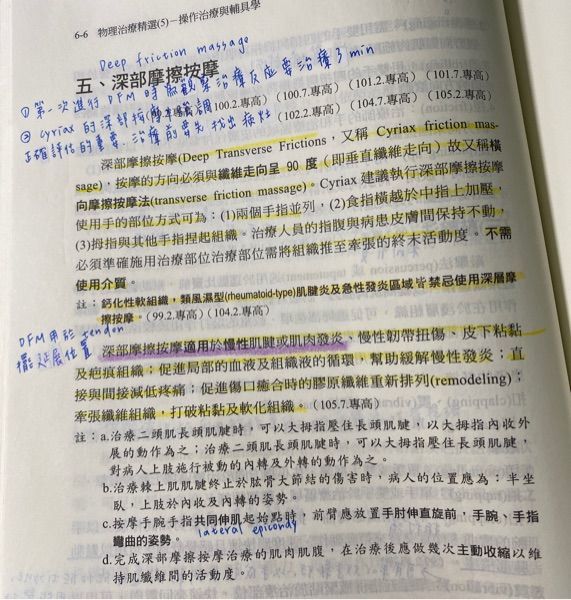 6-6 物理治療精選(5)－操作治療與輔具學
Deep friction massage
五、深部摩擦按摩
①第一次進行DFM時 觀察治療反應要治療3min
(100.2.專高)(100.7.專高)(101.2.專高)(101.7.專高)
②Cyriax的深部按摩 強調
(102.2.專高)(104.7.專高)(105.2.專高)
正確評估的重要.治療前要先找出病灶
深部摩擦按摩(Deep Transverse Frictions)，又稱 Cyriax friction mas-
sage)，按摩的方向必須與纖維走向呈 90 度（即垂直纖維走向）故又稱橫
向摩擦按摩法(transverse friction massage)。Cyriax 建議執行深部摩擦按摩
使用手的部位方式可為：(1)兩個手指並列，(2)食指橫越於中指上加壓，
(3)拇指與其他手指捏起組織。治療人員的指腹與病患皮膚間保持不動，
必須準確施用治療部位治療部位需將組織推至牽張的終末活動度。不需
使用介質。
註：鈣化性軟組織，類風濕型(rheumatoid-type)肌腱炎及急性發炎區域皆禁忌使用深層摩
擦按摩。(99.2.專高)(104.2.專高)
DFM用於 tendon
擺延展位置
深部摩擦按摩適用於慢性肌腱或肌肉發炎，慢性韌帶扭傷、皮下粘黏
及疤痕組織；促進局部的血液及組織液的循環，幫助緩解慢性發炎；直
接與間接減低疼痛；促進傷口癒合時的膠原纖維重新排列(remodeling)；
牽張纖維組織，打破粘黏及軟化組織。(105.7.專高)
註：a.治療二頭肌長頭肌腱時，可以大拇指壓住長頭肌腱，以大拇指內收外
展的動作為之；治療二頭肌長頭肌腱時，可以大拇指壓住長頭肌腱，
對病人上肢施行被動的內轉及外轉的動作為之。
b.治療棘上肌肌腱終止於肱骨大節結的傷害時，病人的位置應為：半坐
臥，上肢於內收及內轉的姿勢。
c.按摩手腕手指共同伸肌起始點時，前臂應放置手肘伸直旋前，手腕、手指
彎曲的姿勢。
lateral epicondy
d.完成深部摩擦按摩治療的肌肉肌腹，在治療後應做幾次主動收縮以維
持肌纖維間的活動度。